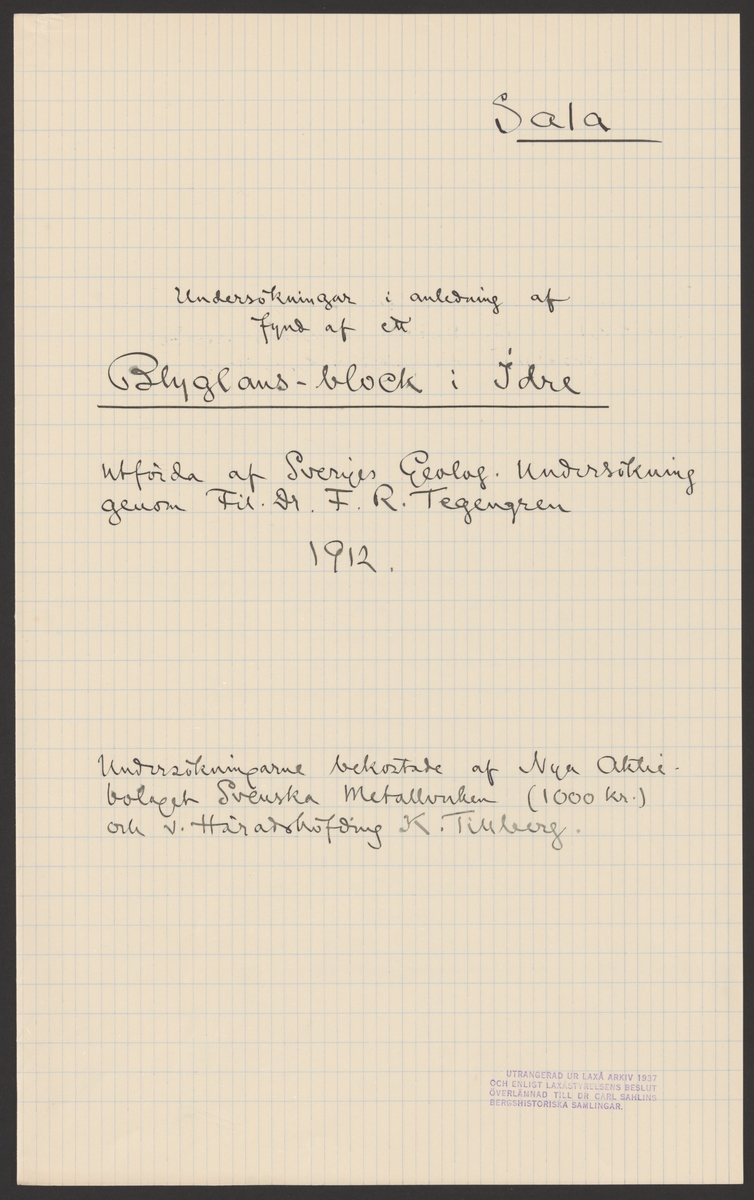 Sala
Undersökningar i anledning af
fynd af ett
Blyglans-block i Idre
utförda af Sveriges Geolog. Undersökning
genom Fil. Dr. F. R. Tegengren
1912.
Undersökningarne bekostade af Nya Aktie-
bolaget Svenska Metallverken (1000 kr.)
och v. Häradshöfding K. Tillberg.
UTRANGERAD UR LAXÅ ARKIV 1937
OCH ENLIGT LAXÅSTYRELSENS BESLUT
ÖVERLÄMNAD TILL DR CARL SAHLINS
BERGSHISTORISKA SAMLINGAR.